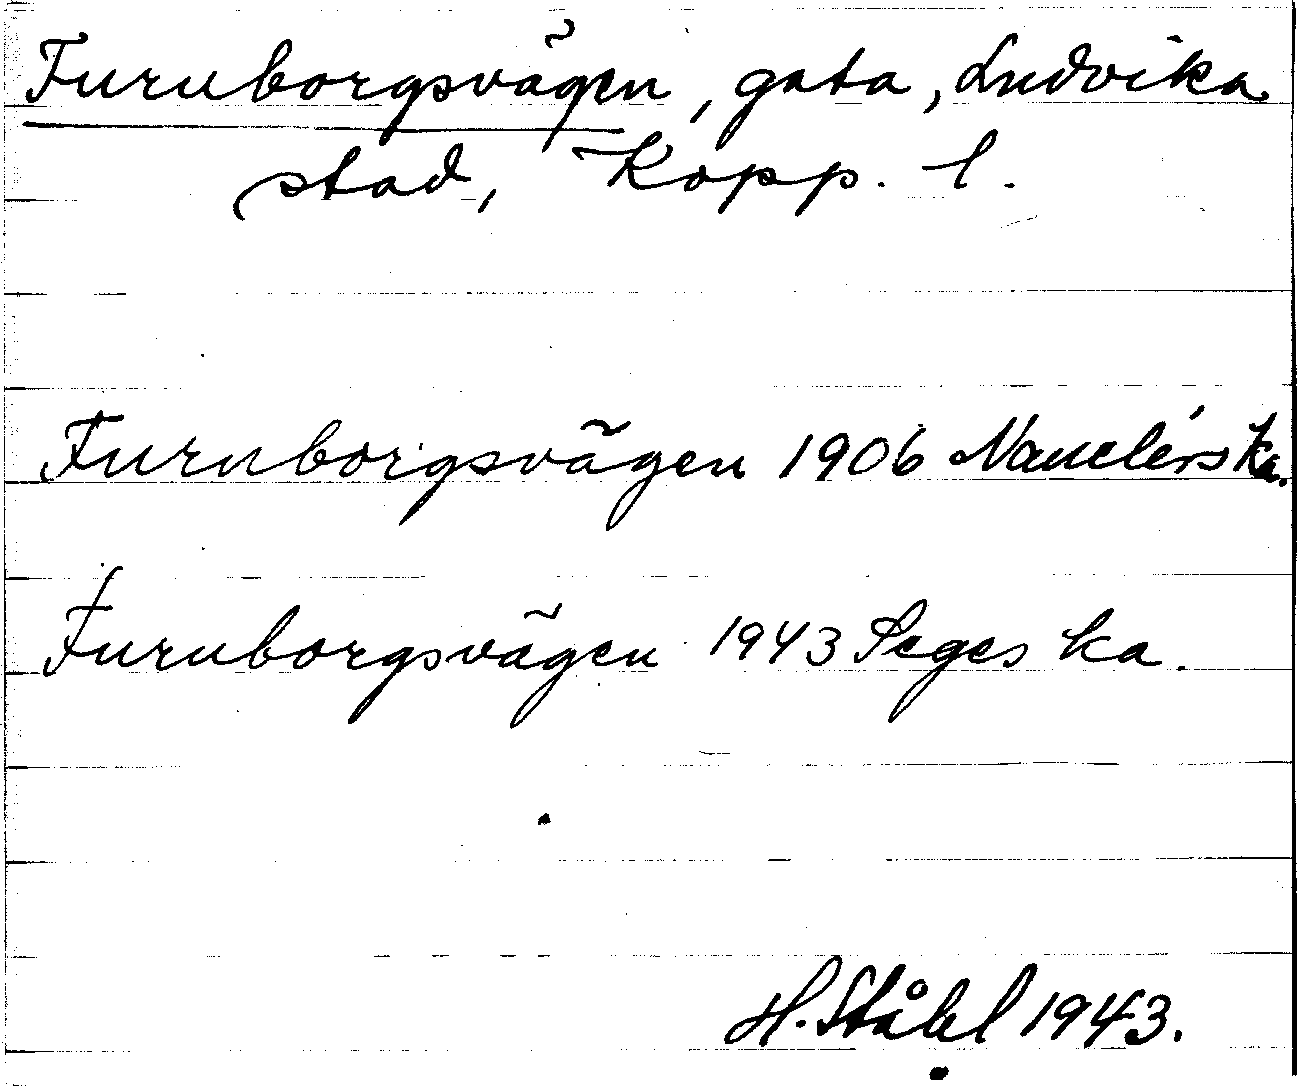 Furuborgsvägen, gata, Ludvika
stad, Kopp. l.
Furuborgsvägen 1906 Nauclérs ka.
Furuborgsvägen 1943 Seges ka.
H. Ståhl 1943.